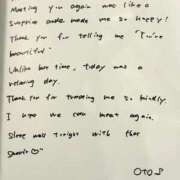 Meeting you again was like a
surprise and made me so happy!
Thank you for telling me "You're
beautiful"
Unlike last time, today was a
relaxing day.
Thank you for treating me so kindly.
I hope we can meet again.
Sleep well tonight with that